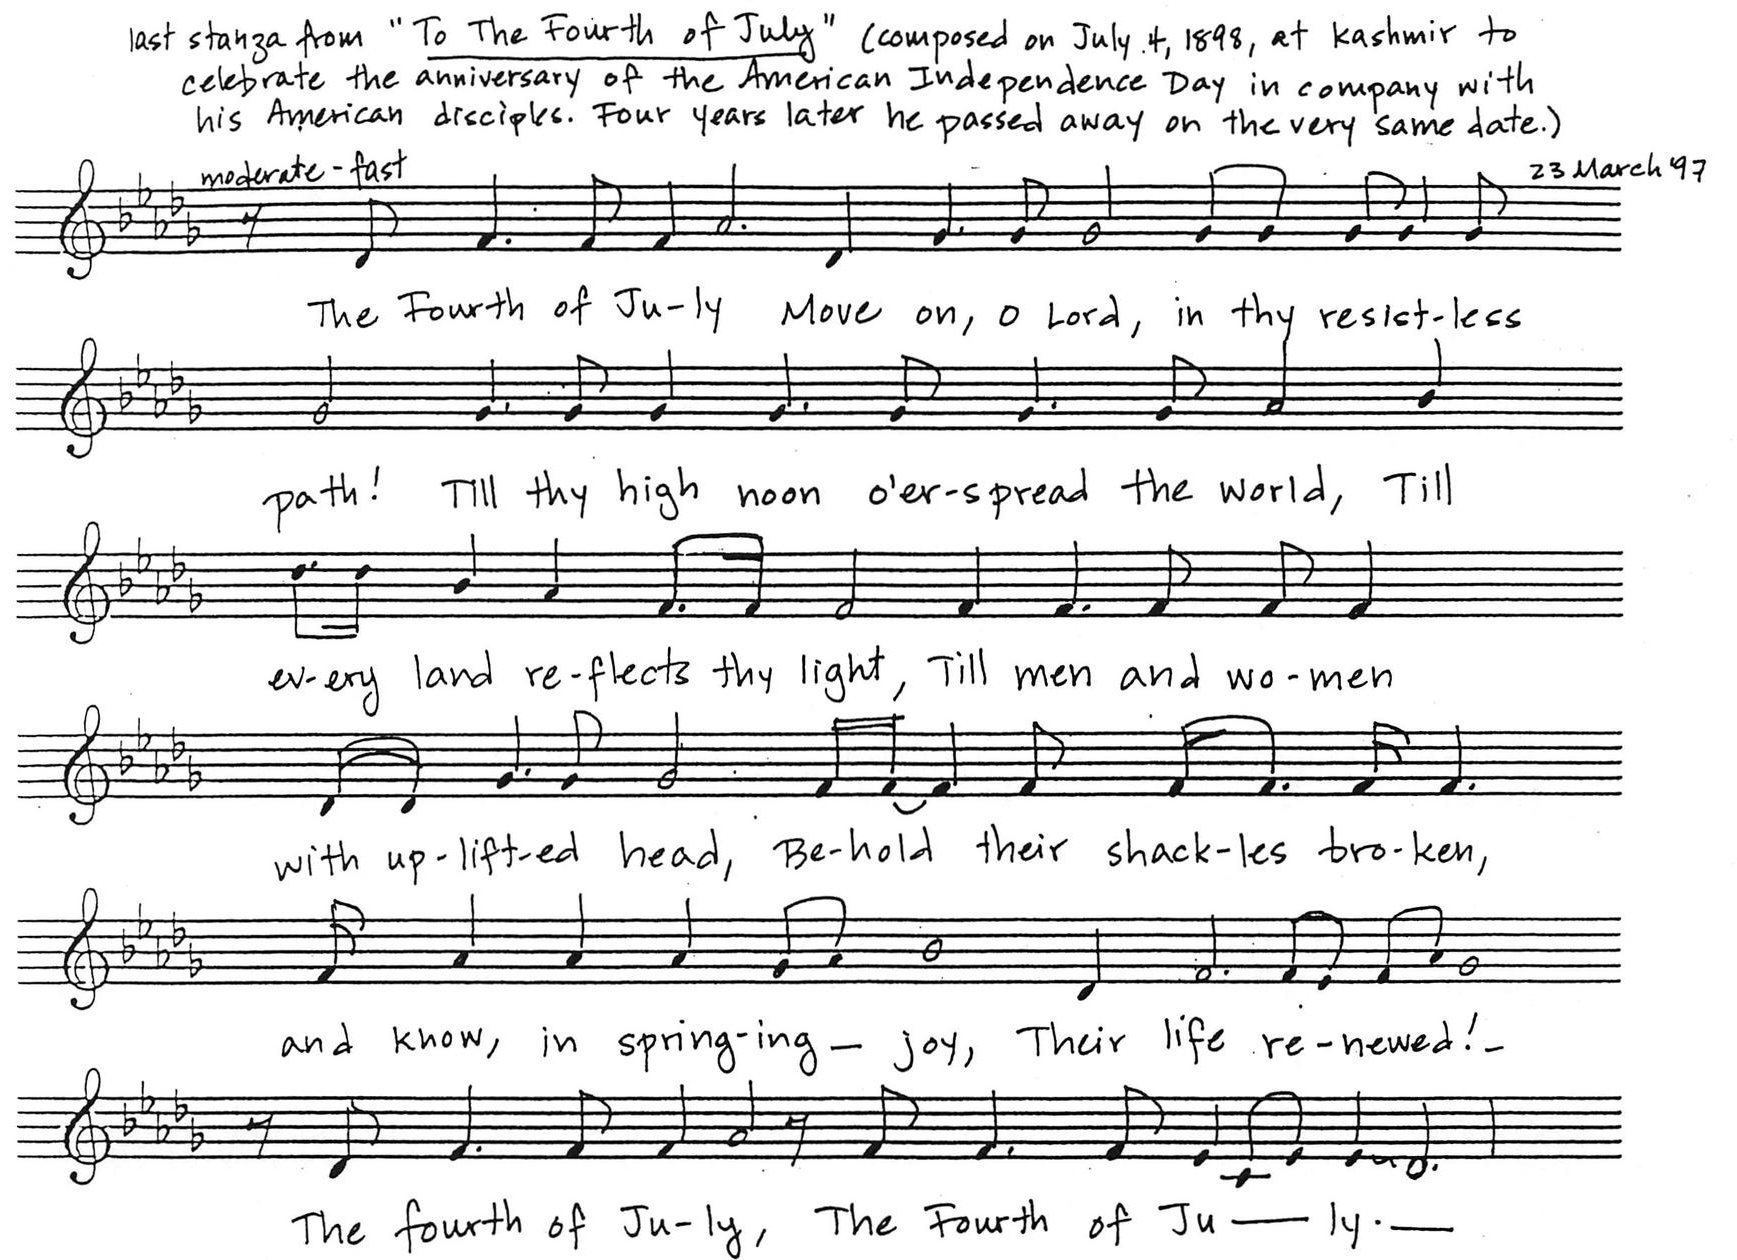 last stanza from "To The Fourth of July" (composed on July 4, 1898, at Kashmir to
celebrate the anniversary of the American Independence Day in company with
his American disciples. Four years later he passed away on the very same date.)
moderate-fast
23 March '97
The Fourth of Ju-ly Move on, O Lord, in thy resist-less
path! Till thy high noon o'er-spread the world, Till
ev-ery land re-flects thy light, Till men and wo-men
with up-lift-ed head, Be-hold their shack-les bro-ken,
and know, in spring-ing — joy, Their life re-newed! -
The fourth of Ju-ly, The Fourth of Ju — ly. —